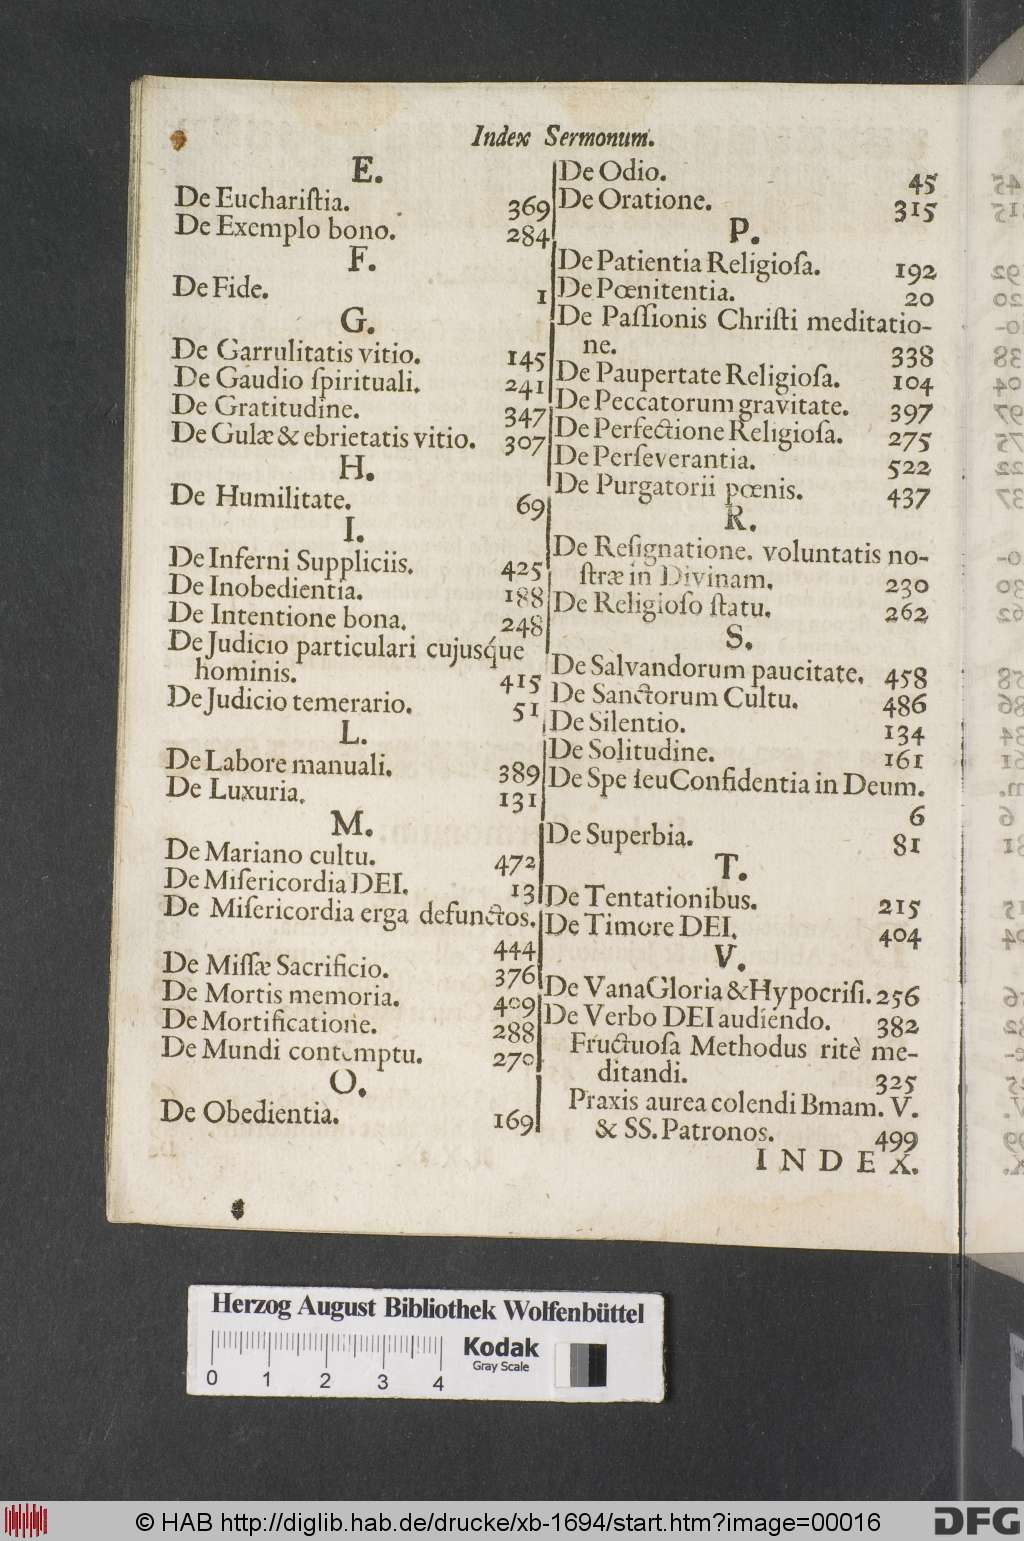 Index Sermonum.
E.
De Euchariſtia. 369
De Exemplo bono. 284
F.
De Fide. 1
G.
De Garrulitatis vitio. 145
De Gaudio ſpirituali. 241
De Gratitudine. 347
De Gulæ & ebrietatis vitio. 307
H.
De Humilitate. 69
I.
De Inferni Suppliciis. 425
De Inobedientia. 188
De Intentione bona. 248
De Judicio particulari cujusq́ue
hominis. 415
De Judicio temerario. 51
L.
De Labore manuali. 389
De Luxuria. 131
M.
De Mariano cultu. 472
De Miſericordia DEI. 13
De Miſericordia erga defunctos.
444
De Miſſæ Sacrificio. 376
De Mortis memoria. 409
De Mortificatione. 288
De Mundi contemptu. 270
O.
De Obedientia. 169
De Odio. 45
De Oratione. 315
P.
De Patientia Religioſa. 192
De Pœnitentia. 20
De Paſſionis Chriſti meditatio-
ne. 338
De Paupertate Religioſa. 104
De Peccatorum gravitate. 397
De Perfectione Religioſa. 275
De Perſeverantia. 522
De Purgatorii pœnis. 437
R.
De Reſignatione. voluntatis no-
ſtræ in Divinam. 230
De Religioſo ſtatu. 262
S.
De Salvandorum paucitate. 458
De Sanctorum Cultu. 486
De Silentio. 134
De Solitudine. 161
De Spe ſeu Confidentia in Deum.
6
De Superbia. 81
T.
De Tentationibus. 215
De Timore DEI. 404
V.
De Vana Gloria & Hypocriſi. 256
De Verbo DEI audiendo. 382
Fructuoſa Methodus ritè me-
ditandi. 325
Praxis aurea colendi Bmam. V.
& SS. Patronos. 499
INDEX.
Herzog August Bibliothek Wolfenbüttel
Kodak
Gray Scale
0 1 2 3 4
© HAB http://diglib.hab.de/drucke/xb-1694/start.htm?image=00016
DFG